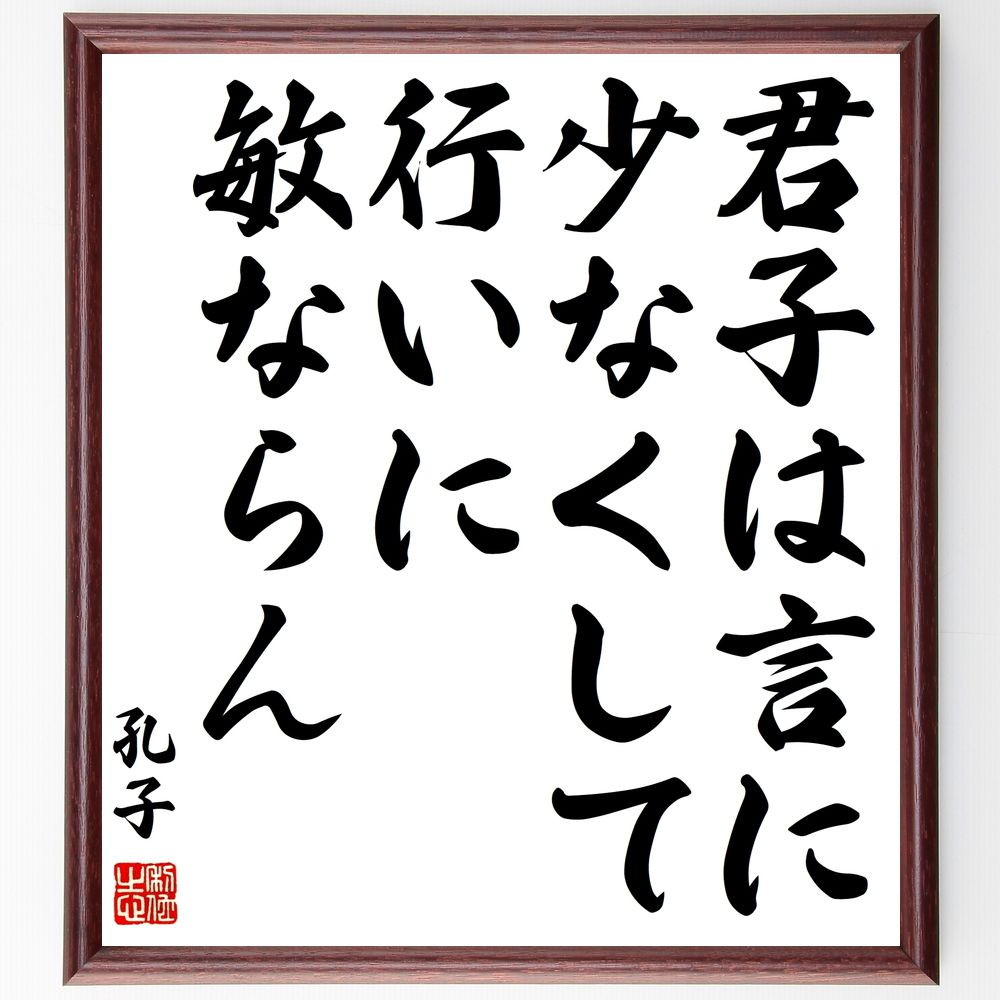 君子は言に
少なくして
行いに
敏ならん
孔子